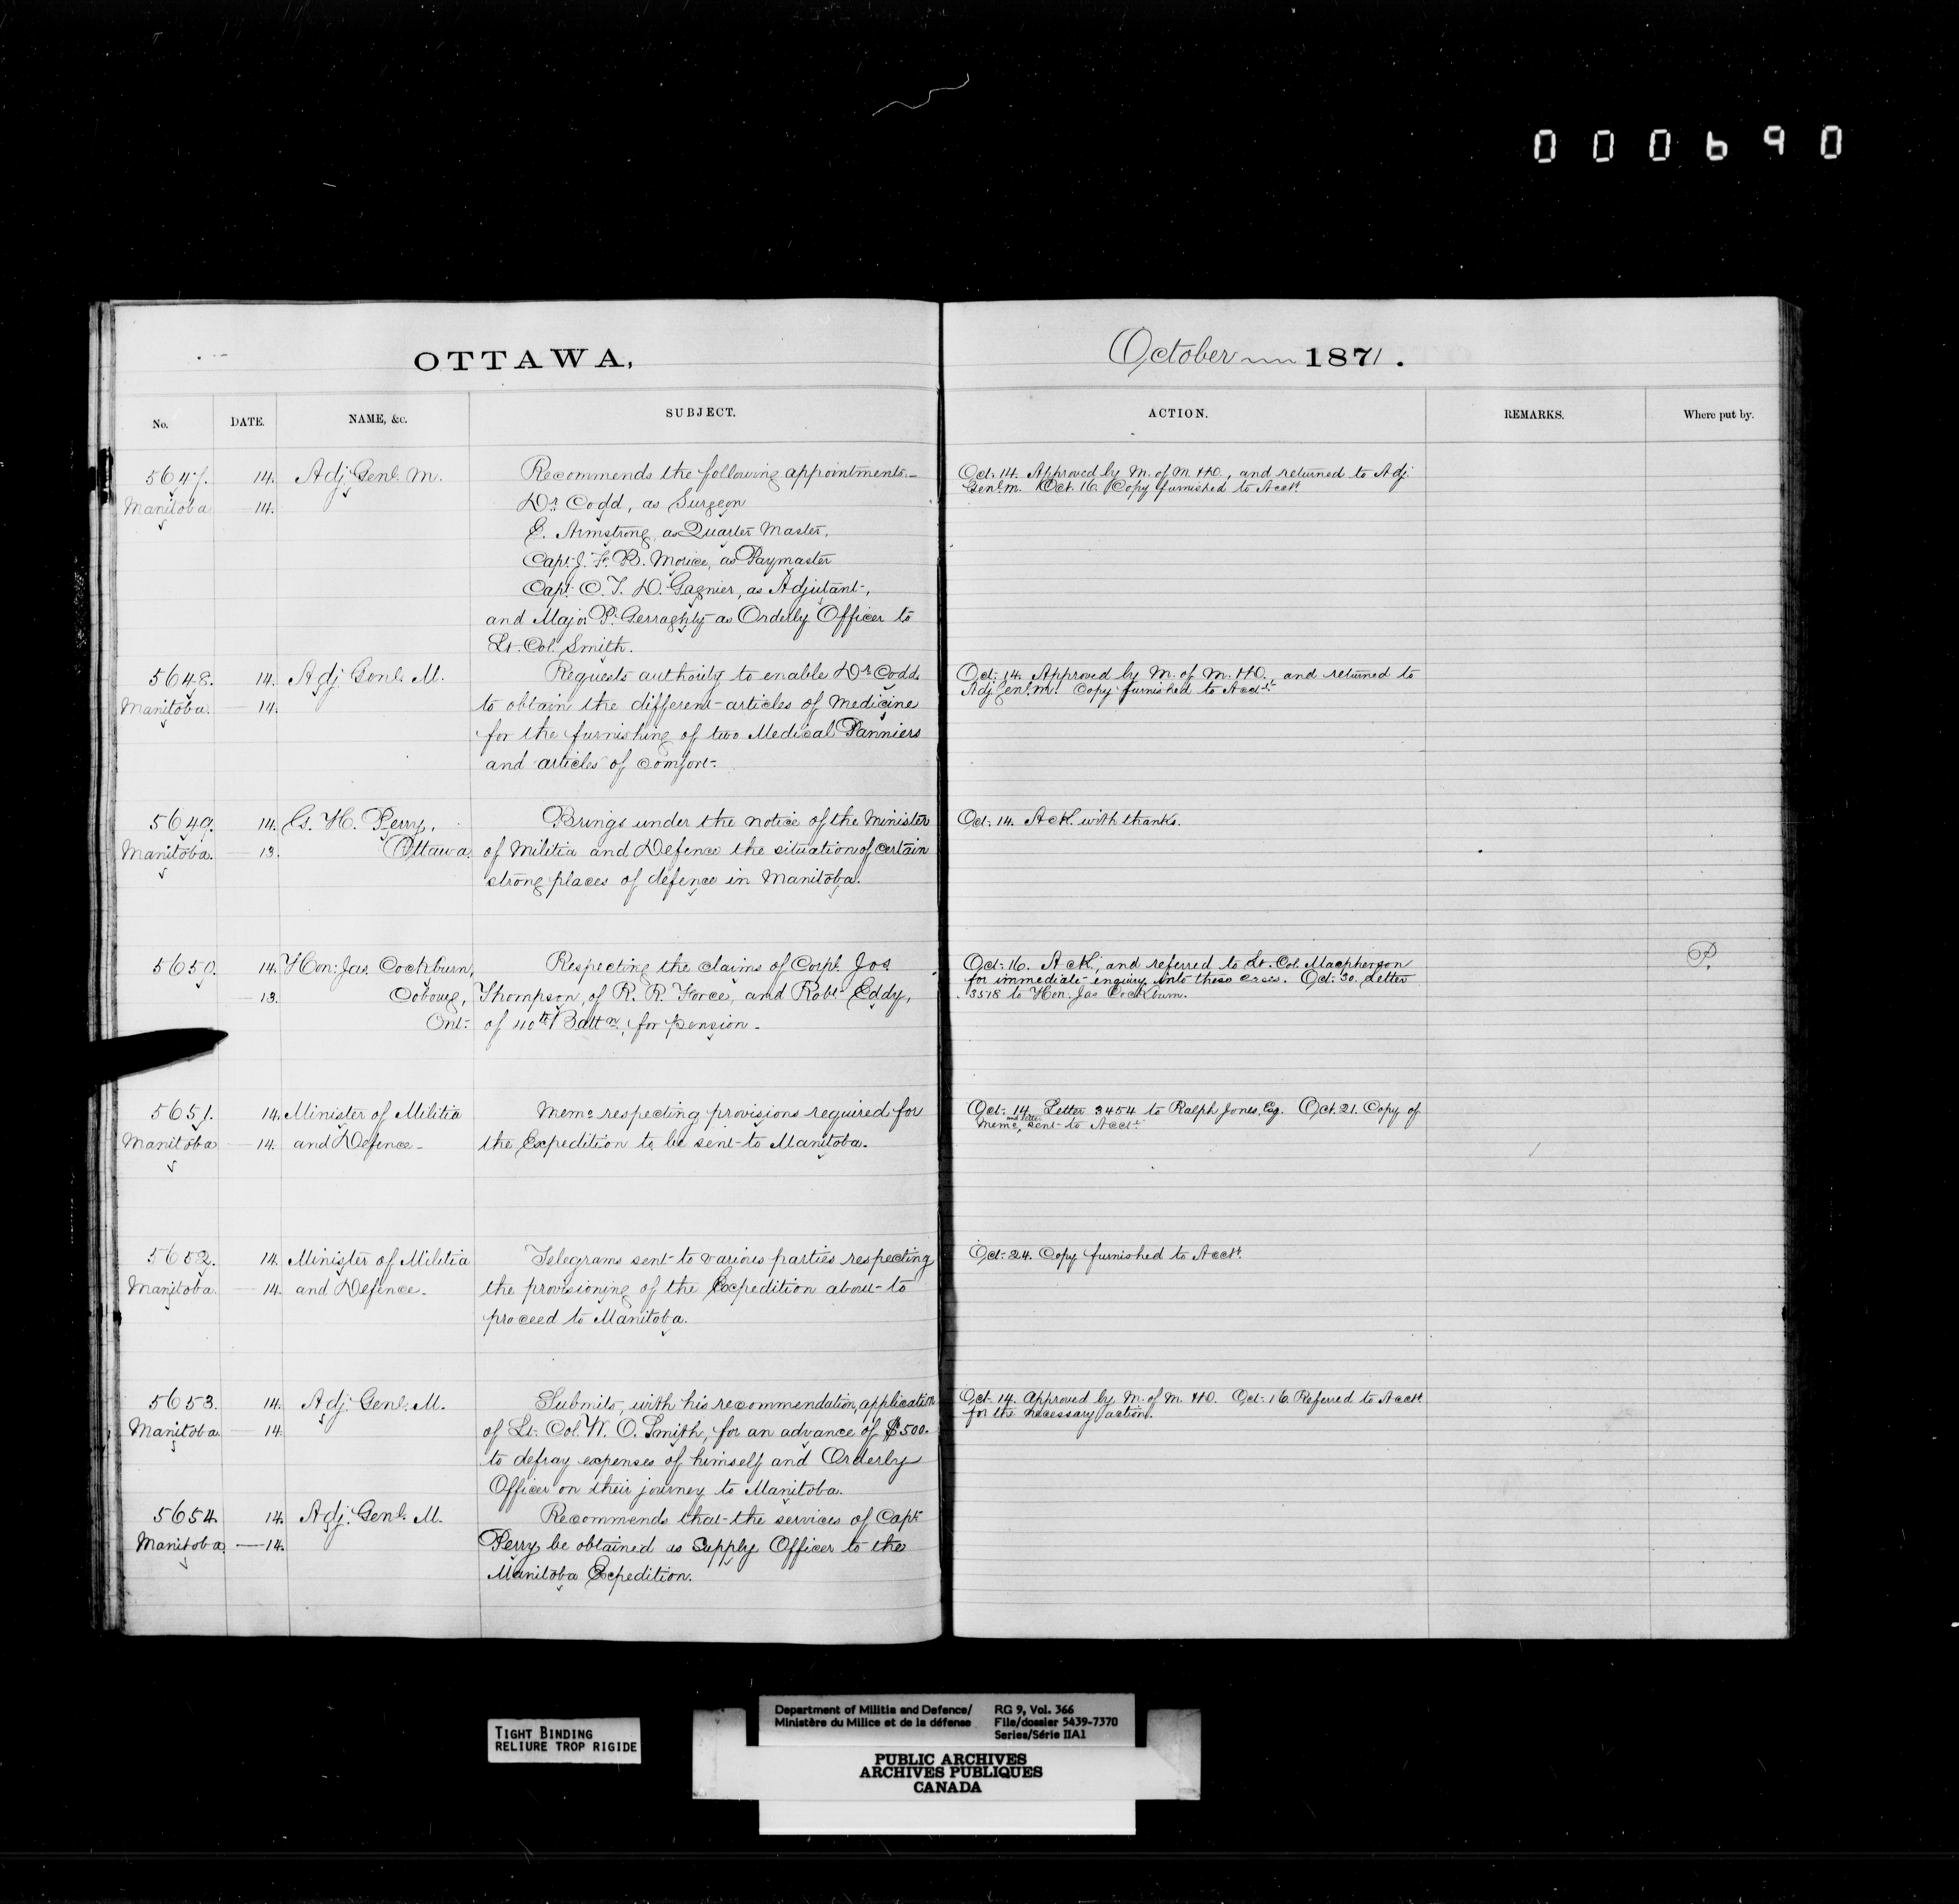 000690
OTTAWA,
October 1871.
No. DATE. NAME, &c. SUBJECT. ACTION. REMARKS. Where put by.
5647. 14. Adj. Genl. M. Recommends the following appointments.-
Manitoba 14. Dr. Codd, as Surgeon
E. Armstrong, as Quarter Master,
Capt. J. F. B. Morice, as Paymaster
Capt. C. T. D. Gagnier, as Adjutant,
and Major P. Gerraghty as Orderly Officer to
Lt. Col. Smith.
Oct: 14. Approved by M. of M. & D., and returned to Adj.
Genl. M. Oct. 16. Copy furnished to Acct.
5648. 14. Adj. Genl. M. Requests authority to enable Dr. Codd
Manitoba. 14. to obtain the different articles of medicine
for the furnishing of two Medical Panniers
and articles of comfort.
Oct: 14. Approved by M. of M. & D., and returned to
Adj. Genl. M. Copy furnished to Acct.
5649. 14. G. H. Perry, Brings under the notice of the Minister
Manitoba. 13. Ottawa. of Militia and Defence the situation of certain
strong places of defence in Manitoba.
Oct: 14. Ackd. with thanks.
5650. 14. Hon: Jas. Cockburn, Respecting the claims of Corpl. Jos.
13. Cobourg, Thompson, of R. R. Force, and Robt. Eddy,
Ont: of 40th Battn., for pension.
Oct: 16. Ackd., and referred to Lt. Col. Macpherson
for immediate enquiry into these cases. Oct: 30. Letter
3518 to Hon. Jas Cockburn.
P.
5651. 14. Minister of Militia Memo respecting provisions required for
Manitoba 14. and Defence. the Expedition to be sent to Manitoba.
Oct: 14. Letter 3454 to Ralph Jones, Esq. Oct. 21. Copy of
Memo, sent to Acct.
5652. 14. Minister of Militia Telegrams sent to various parties respecting
Manitoba. 14. and Defence. the provisioning of the Expedition about to
proceed to Manitoba.
Oct: 24. Copy furnished to Acct.
5653. 14. Adj. Genl. M. Submits, with his recommendation, application
Manitoba 14. of Lt. Col. W. O. Smith, for an advance of $500.
to defray expenses of himself and Orderly
Officer on their journey to Manitoba.
Oct. 14. Approved by M. of M. & D. Oct: 16. Referred to Acct.
for the necessary action.
5654. 14. Adj. Genl. M. Recommends that the services of Capt.
Manitoba. 14. Perry be obtained as Supply Officer to the
Manitoba Expedition.
TIGHT BINDING
RELIURE TROP RIGIDE
Department of Militia and Defence/
Ministère du Milice et de la défense
RG 9, Vol. 366
File/dossier 5439-7370
Series/Série IIA1
PUBLIC ARCHIVES
ARCHIVES PUBLIQUES
CANADA